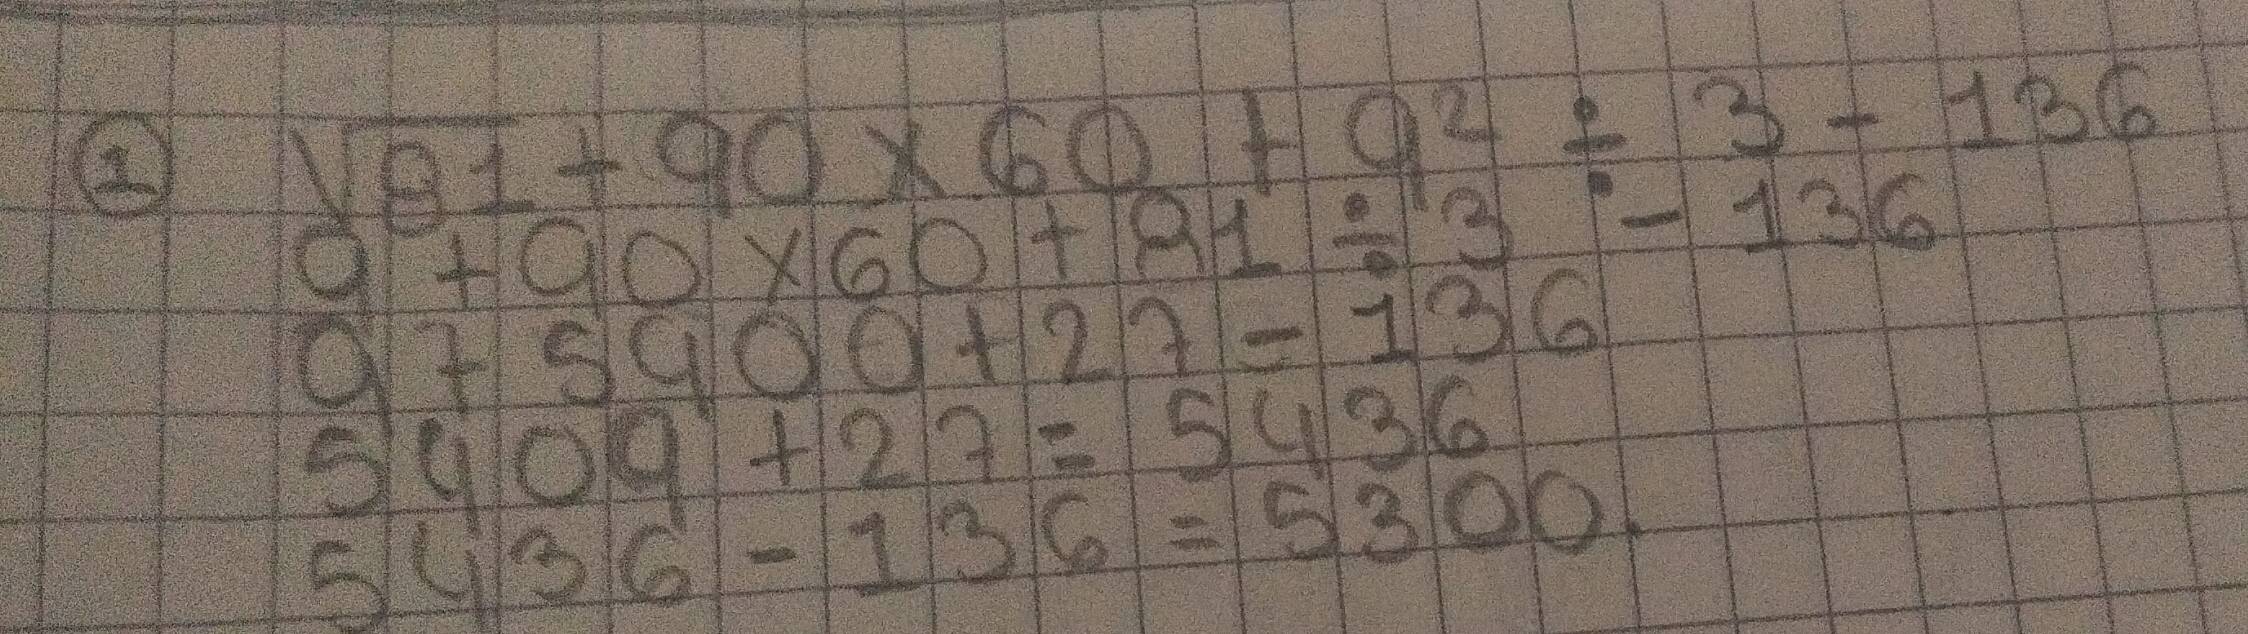 ① √81 + 90 × 60 + 9² ÷ 3 - 136
9 + 90 × 60 + 81 ÷ 3 - 136
9 + 5400 + 27 - 136
5409 + 27 = 5436
5436 - 136 = 5300.